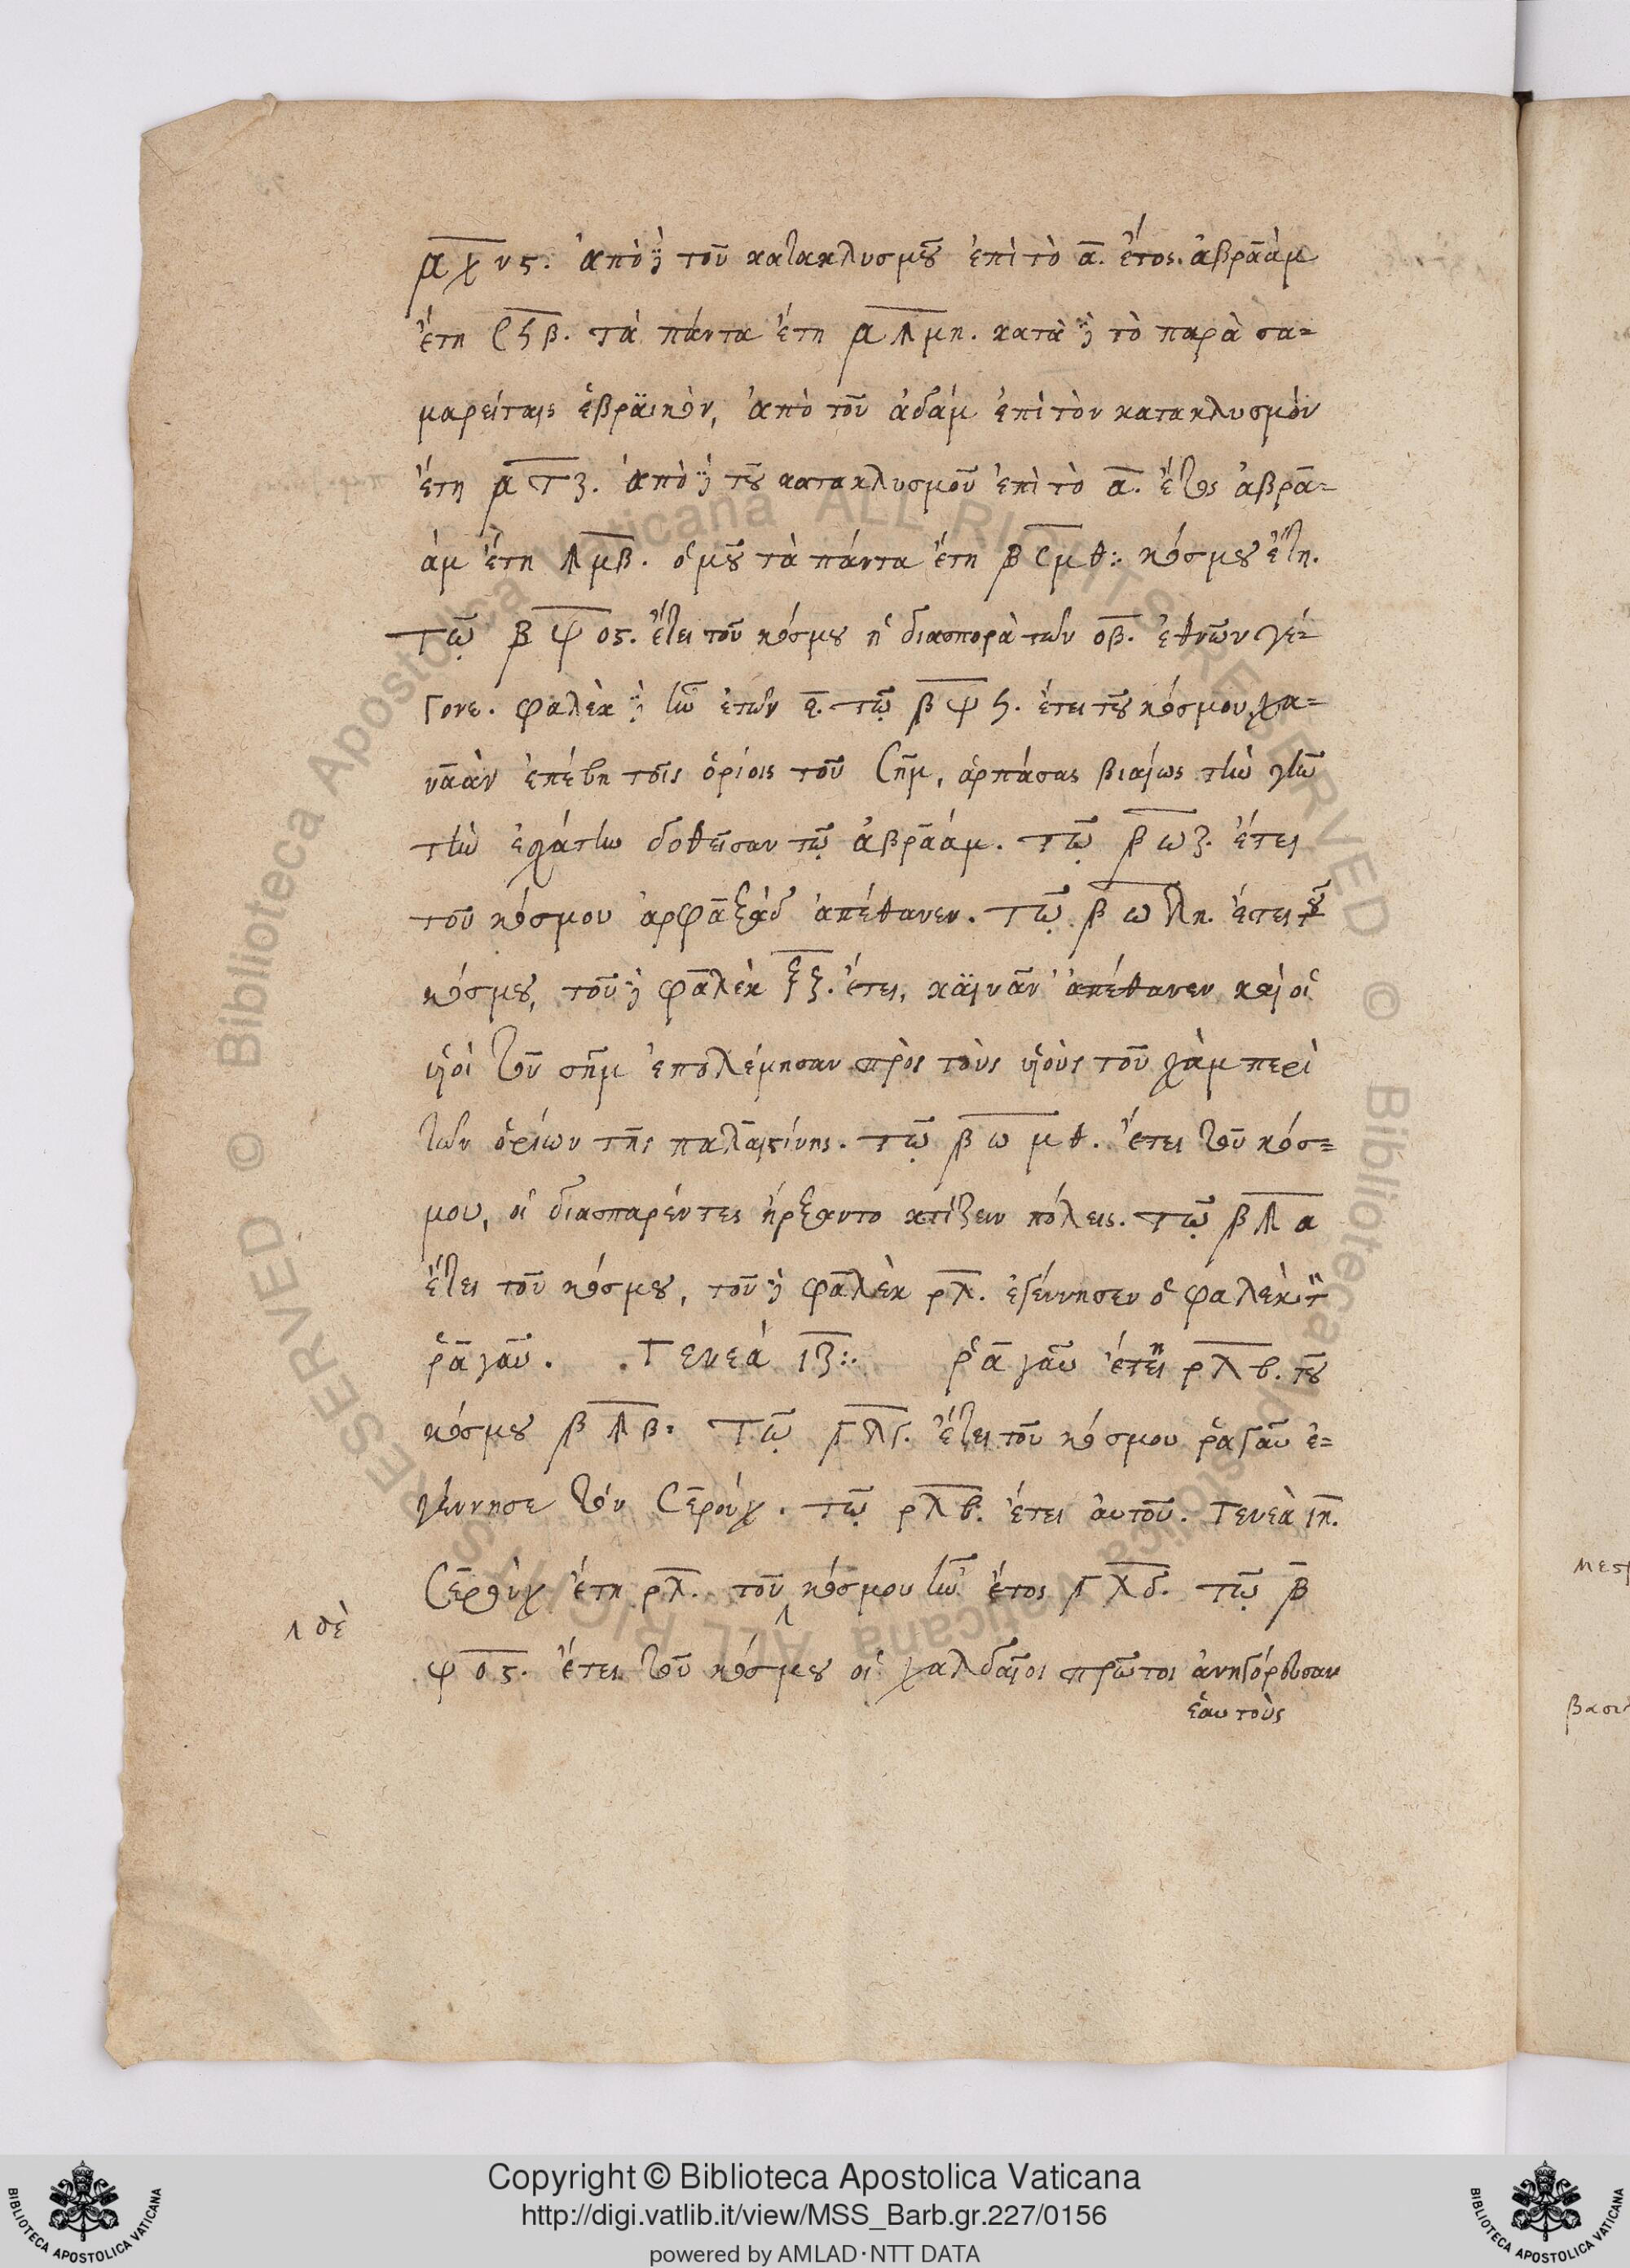 ͵αχνϛ. ἀπὸ δὲ τοῦ κατακλυσμοῦ ἐπὶ τὸ α. ἔτος. ἀβραὰμ
ἔτη ϲϟβ. τὰ πάντα ἔτη ͵αϡμη. κατὰ δὲ τὸ παρὰ σα=
μαρείταις ἑβραϊκὸν, ἀπὸ τοῦ ἀδὰμ ἐπὶ τὸν κατακλυσμὸν
ἔτη ͵ατζ. ἀπὸ δὲ τοῦ κατακλυσμοῦ ἐπὶ τὸ α. ἔτος ἀβρα=
ὰμ ἔτη ϡμβ. ὁμοῦ τὰ πάντα ἔτη ͵βϲμθ: κόσμου ἔτη.
Τῷ ͵βψοϛ. ἔτει τοῦ κόσμου ἡ διασπορὰ τῶν οβ. ἐθνῶν γέ=
γονε. φαλὲκ δὲ ἦν ἐτῶν ϛ. τῷ ͵βψϟ. ἔτει τοῦ κόσμου χα=
ναὰν ἐπέβη τοῖς ὁρίοις τοῦ Σὴμ, ἁρπάσας βιαίως τὴν γῆν
τὴν ἐχάτην δοθεῖσαν τῷ ἀβραάμ. τῷ ͵βωζ. ἔτει
τοῦ κόσμου ἀρφαξὰδ ἀπέθανεν. τῷ ͵βωλη. ἔτει τοῦ
κόσμου, τοῦ δὲ φαλὲκ ξζ. ἔτει, καϊνὰν ἀπέθανεν καὶ οἱ
υἱοὶ τοῦ σὴμ ἐπολέμησαν πρὸς τοὺς υἱοὺς τοῦ χὰμ περὶ
τῶν ὁρίων τῆς παλαιστίνης. τῷ ͵βωμθ. ἔτει τοῦ κόσ=
μου, οἱ διασπαρέντες ἤρξαντο κτίζειν πόλεις. τῷ ͵βϡα
ἔτει τοῦ κόσμου, τοῦ δὲ φαλὲκ ρλ. ἐγέννησεν ὁ φαλὲκ τὸν
ῥαγαῦ. Γενεά ιζ: ῥαγαῦ ἔτη ρλβ. τοῦ
κόσμου ͵βϡβ: Τῷ ͵γλγ. ἔτει τοῦ κόσμου ῥαγαῦ ἐ=
γέννησε τὸν Σερούχ. τῷ ρλβ. ἔτει αὐτοῦ. Γενεὰ ιη.
Σεροὺχ ἔτη ρλ. τοῦ κόσμου ἦν ἔτος ͵γλδ. τῷ ͵β
δὲ
ψοϛ. ἔτει τοῦ κόσμου οἱ χαλδαῖοι πρῶτοι ἀνηγόρευσαν
ἑαυτοὺς
βασι
Copyright © Biblioteca Apostolica Vaticana
http://digi.vatlib.it/view/MSS_Barb.gr.227/0156
powered by AMLAD·NTT DATA
BIBLIOTECA APOSTOLICA VATICANA
BIBLIOTECA APOSTOLICA VATICANA
© Biblioteca Apostolica Vaticana ALL RIGHTS RESERVED © Biblioteca Apostolica Vaticana ALL RIGHTS RESERVED